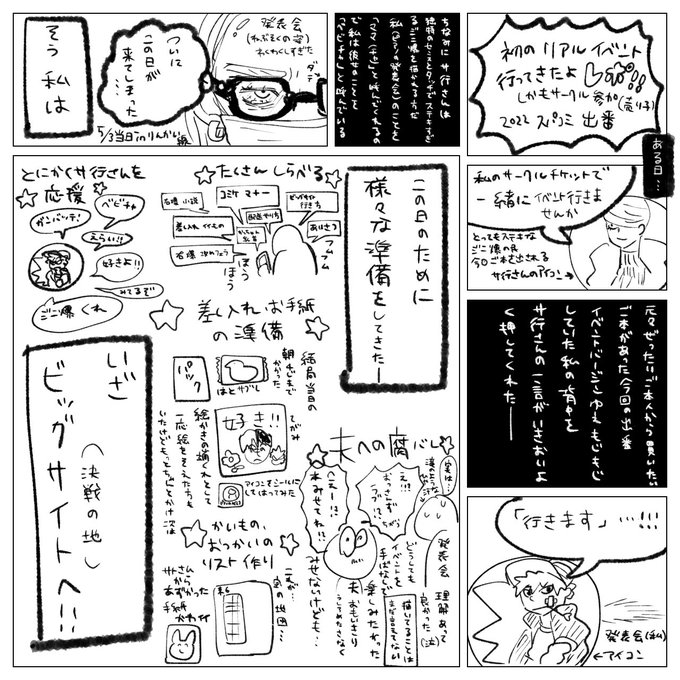 初のリアルイベント
行ってきたよ
しかもサークル参加(売り子)
2022 スパコミ 出番
ある日…
私のサークルチケットで
一緒にイベント行きま
せんか
とってもステキな
今日ご本を出される
サ行さんのアイコン→
元々ぜったいご本人から買いたい
ご本があった今回の出番
イベントバージンゆえもじもじ
していた私の背中を
サ行さんの一言がいきおいよ
く押してくれた――
「行きます」…!!!
発表会(私)
←アイコン
ちなみにサ行さんは
独特のセンスとタッチでステキすぎ
私(ピアノの発表会)のことを
で私は彼女のことを
「ベビチャ」と呼んでいる
発表会
(ねぶそくの姿)
わくわくしすぎた
ついに
この日が
来てしまった…
5/3当日inりんかい線
そう 私は
この日のために
様々な準備をしてきた―
たくさんしらべる
コミケ マナー
ビッグサイト
行き方
差し入れ イイもの
ありさつ
フムフム
ほう
ほう
とにかくサ行さんを
応援
ベビチャ
ガンバッテ!
えらい!!
好きよ!!
みてるぞ
くれ
差し入れ・お手紙
の準備
結局当日の
朝までかかった
パック
はとサブレ
てがみ
好き!!
絵かきの端くれとして
一応絵をそえた方も
アイコンをシールに
してはってみた
かいもの、
おつかいの
リスト作り
サ行さん
から
あずかった
手紙
かわイイ
これが…
宝の地図…
夫への腐バレ
実は…
涙のような汗
え!!
おっさんず
ラブ!?
ちがう
へぇー!!
本みせてね!!
みせないけども…
発表会
どうしても
イベントを
手ばなしで
楽しみたかった
夫
理解あって
良かった(泣)
描いてることは
まだ言えてない
おもいきり
いざ
(決戦の地)
ビッグサイトへ!!